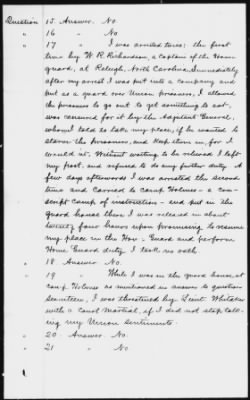 Question 15 Answer. No
" 16 " No
" 17 " I was arrested twice: the first
time by W. R. Richardson, a Captain of the Home
guard, at Raleigh, North Carolina. Immediately
after my arrest I was put into a company and
put as a guard over Union prisoners, I allowed
the prisoners to go out to get something to eat,
was censured for it by the Adjutant General,
whom I told to take my place, if he wanted to
starve the prisoners, and keep them in, for I
would n't. Without waiting to be relieved I left
my post, and refused to do any further duty. A
few days afterwards I was arrested the second
time and carried to Camp Holmes - a con-
script camp of instruction - and put in the
guard house then I was released in about
twenty four hours upon promising to resume
my place in the Home Guard and perform
Home Guard duty. I took no oath.
" 18 Answer No.
" 19 " While I was in the guard house at
Camp Holmes as mentioned in answer to question
seventeen, I was threatened by Lieut Whitaker
with a Court Martial, if I did not stop talk-
ing my Union sentiments.
" 20 Answer No.
" 21 " No